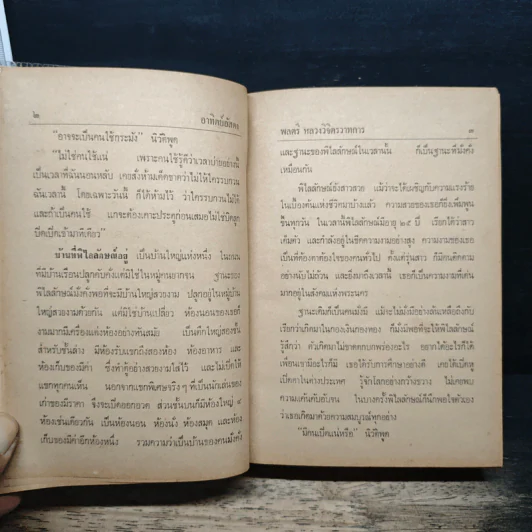 ๒
อาทิตย์อัสดง
"อาจจะเป็นคนใช้กระมัง" นิวัติพูด
"ไม่ใช่คนใช้แน่ เพราะคนใช้รู้ดีว่าเวลาบ่ายอย่างนี้
เป็นเวลาที่ฉันนอนหลับ เคยสั่งห้ามเด็ดขาดว่าไม่ให้ใครรบกวน
ฉันเวลานี้ โดยเฉพาะวันนี้ ก็ได้ห้ามไว้ ว่าใครรบกวนไม่ได้
และถ้าเป็นคนใช้ แกจะต้องเคาะประตูก่อนเสมอไม่ใช่บิดลูก
บิดเปิดเข้ามาทีเดียว"
บ้านที่พิไลลักษณ์อยู่ เป็นบ้านใหญ่แห่งหนึ่ง ในถนน
ที่มีบ้านเรือนปลูกคับคั่งแต่มิใช่ในหมู่คนยากจน ฐานะของ
พิไลลักษณ์มั่งคั่งพอที่จะมีบ้านใหญ่สวยงาม ปลูกอยู่ในหมู่บ้าน
ใหญ่สวยงามด้วยกัน แต่มิใช่บ้านเปลี่ยว ห้องนอนของเธอก็
งามมากมีเครื่องแต่งห้องอย่างทันสมัย เป็นตึกใหญ่สองชั้น
สำหรับชั้นล่าง มีห้องรับแขกถึงสองห้อง ห้องอาหาร และ
ห้องเก็บของมีค่า ซึ่งทำตู้อย่างสวยงามใส่ไว้ และไม่เปิดให้
แขกทุกคนเห็น นอกจากแขกพิเศษจริง ๆ ที่เป็นนักเล่นของ
เก่าของมีราคา จึงจะเปิดออกอวด ส่วนชั้นบนก็มีห้องใหญ่ ๔
ห้องเช่นเดียวกัน เป็นห้องนอน ห้องนั่ง ห้องสมุด และห้อง
เก็บของมีค่าอีกห้องหนึ่ง รวมความว่าเป็นบ้านของคนมั่งคั่ง
พลตรี หลวงวิจิตรวาทการ
๓
และฐานะของพิไลลักษณ์ในเวลานั้น ก็เป็นฐานะที่มั่งคั่ง
เหมือนกัน
พิไลลักษณ์ยังสาวสวย แม้ว่าจะได้เผชิญกับความแรงร้าย
ในเบื้องต้นแห่งชีวิตมาบ้างแล้ว ความสวยของเธอก็ยังเพิ่มพูน
ขึ้นทุกวัน ในเวลานี้พิไลลักษณ์มีอายุ ๒๕ ปี เรียกได้ว่าสาว
เต็มตัว และกำลังอยู่ในขีดความงามอย่างสูง ความงามของเธอ
เป็นที่ต้องตาต้องใจของคนทั่วไป ตั้งแต่รุ่นสาว ก็มีคนติดตาม
อย่างนับไม่ถ้วน และยิ่งมาถึงเวลานี้ เธอก็เป็นความงามที่เด่น
มากอยู่ในสังคมแห่งพระนคร
ฐานะเดิมก็เป็นคนมั่งมี แม้จะไม่มั่งมีอย่างล้นเหลือถึงกับ
เรียกว่าเกิดมาในกองเงินกองทอง ก็มั่งมีพอที่จะให้พิไลลักษณ์
รู้สึกว่า ตัวเกิดมาไม่ขาดตกบกพร่องอะไร อยากได้อะไรก็ได้
เพื่อนเขามีอะไรก็มี เธอได้รับการศึกษาอย่างดี เคยได้เปิดหู
เปิดตาในต่างประเทศ รู้จักโลกอย่างกว้างขวาง ไม่เคยพบ
ความแค้นคับอับจน ในบางครั้งพิไลลักษณ์ก็นึกพอใจตัวเอง
ว่าเธอเกิดมาด้วยความสมบูรณ์ทุกอย่าง
"มีคนเปิดแน่หรือ" นิวัติพูด